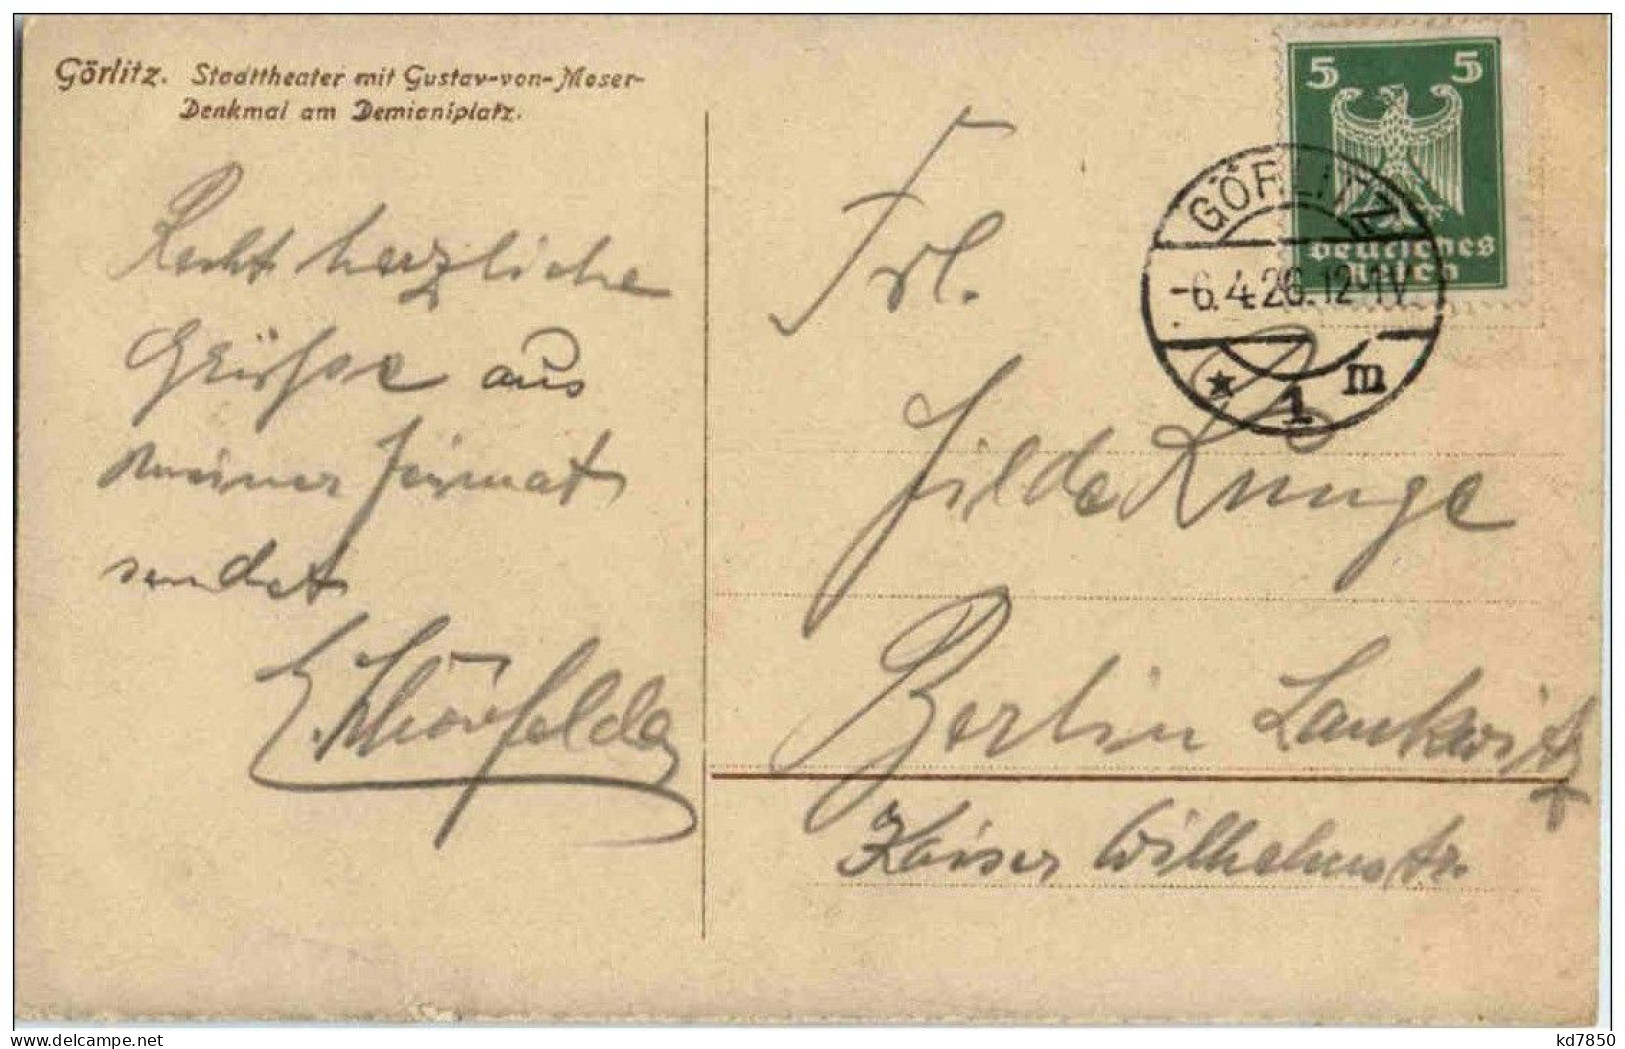 Görlitz. Stadttheater mit Gustav-von-Moser-
Denkmal am Demianiplatz.
Recht herzliche
Grüsse aus
meiner Heimat
sendet
5 5
Deutsches
Reich
GÖRLITZ
-6.4.26.12-1V.
* 1 m
Frl.
Hilde Runge
Berlin Lankwitz
Kaiser Wilhelmstr.
delcampe.net
kd7850